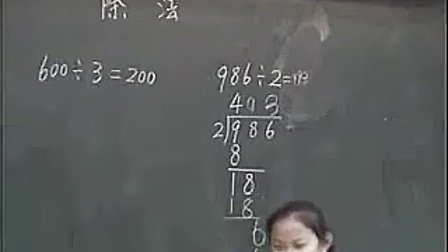 除 法
600÷3=200
986÷2=193
493
2)986
8
18
18
6